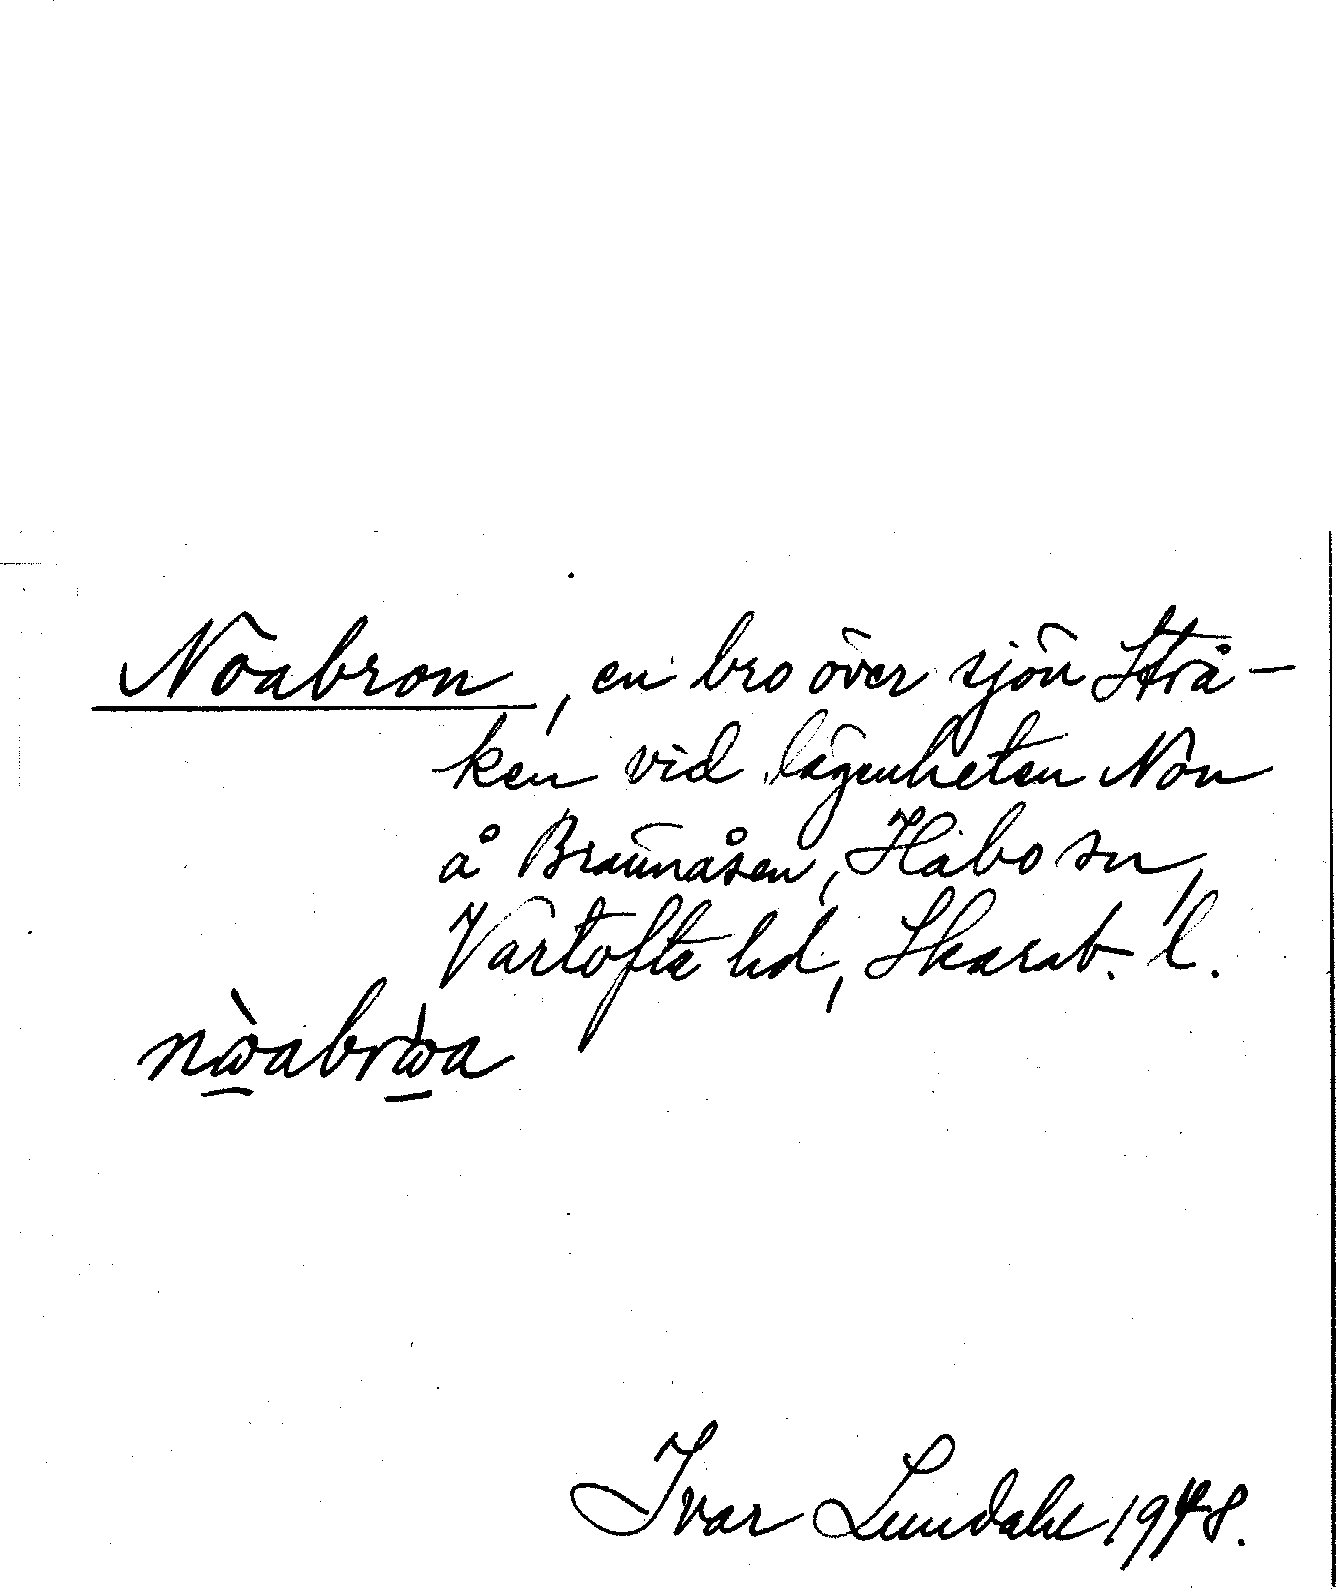 Noabron, en bro över sjön Strå-
ken vid lägenheten Non
å Brännåsen, Habo sn,
Vartofta hd, Skarab. l.
nὼ̲abrὼ̲a
Ivar Lundahl 1948.